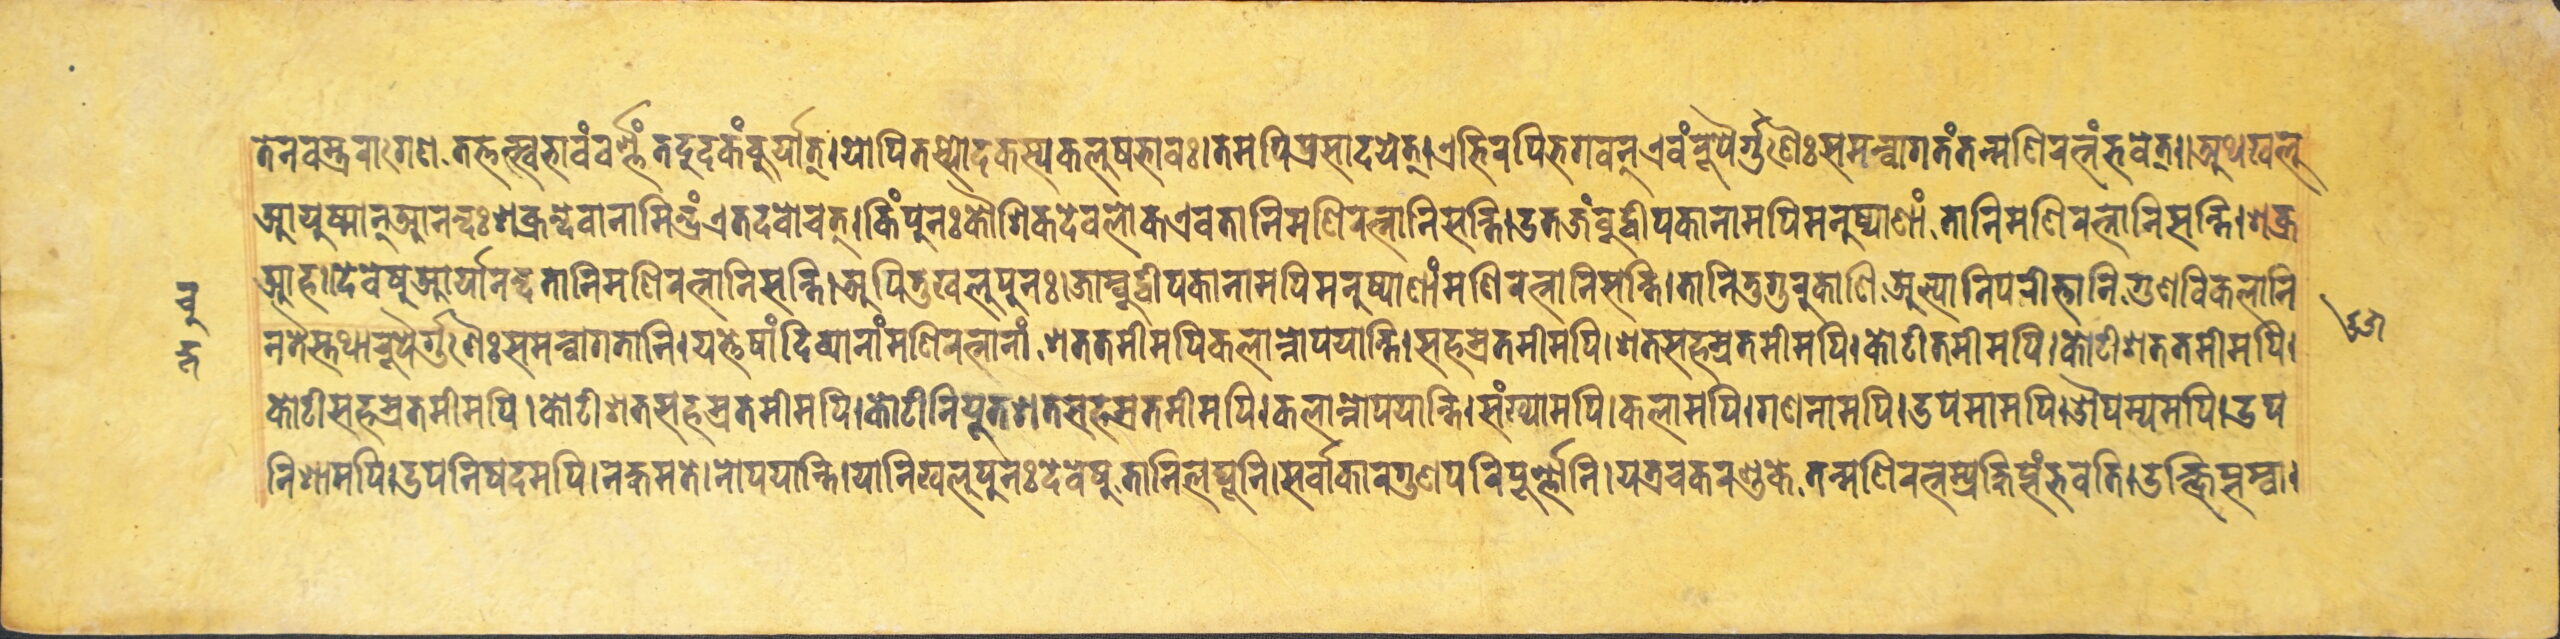 तेनवस्त्ररागेण तत्तत्स्वभावंवर्ण्णं तदुदकंकुर्यात्।योपितस्योदकस्यकलुषभावः।तमपिप्रसादयेत्।एभिरपिभगवन्एवंरूपैर्गुणैःसमन्वागतंतन्मणिरत्नंभवेत्॥अथखलु
आयुष्मान्आनन्दःशक्रन्देवानामिन्द्रंएतदवोचत्।किंपुनःकौशिकदेवलोकएवतानिमणिरत्नानिसन्ति।उतजंबुद्वीपकानामपिमनुष्याणां तानिमणिरत्नानिसन्ति।शक्र
आह।देवेषुआर्यानन्दतानिमणिरत्नानिसन्ति।अपितुखलुपुनः।जाम्बुद्वीपकानामपिमनुष्याणांमणिरत्नानिसन्ति।तानितुगुरुकाणि अल्पानिपरीत्तानि गुणविकलानि
नतैस्तथारूपैर्गुणैःसमन्वागतानि।यत्तेषांदिव्यानांमणिरत्नानां शततमीमपिकलान्नोपयान्ति।सहस्रतमीमपि।शतसहस्रतमीमपि।कोटीतमीमपि।कोटीशततमीमपि।
कोटीसहस्रतमीमपि।कोटीशतसहस्रतमीमपि।कोटीनियुतशतसहस्रतमीमपि।कलान्नोपयान्ति।संख्यामपि।कलामपि।गणनामपि।उपमामपि।औपम्यमपि।उप
निशामपि।उपनिषदमपि।नक्षमते।नोपयान्ति।यानिखलुपुनःदेवेषु तानिलघूनि।सर्वाकारगुणपरिपूर्ण्णानि।यत्रचकरण्डके तन्मणिरत्नम्प्रक्षिप्तंभवति।उत्क्षिप्तम्वा।